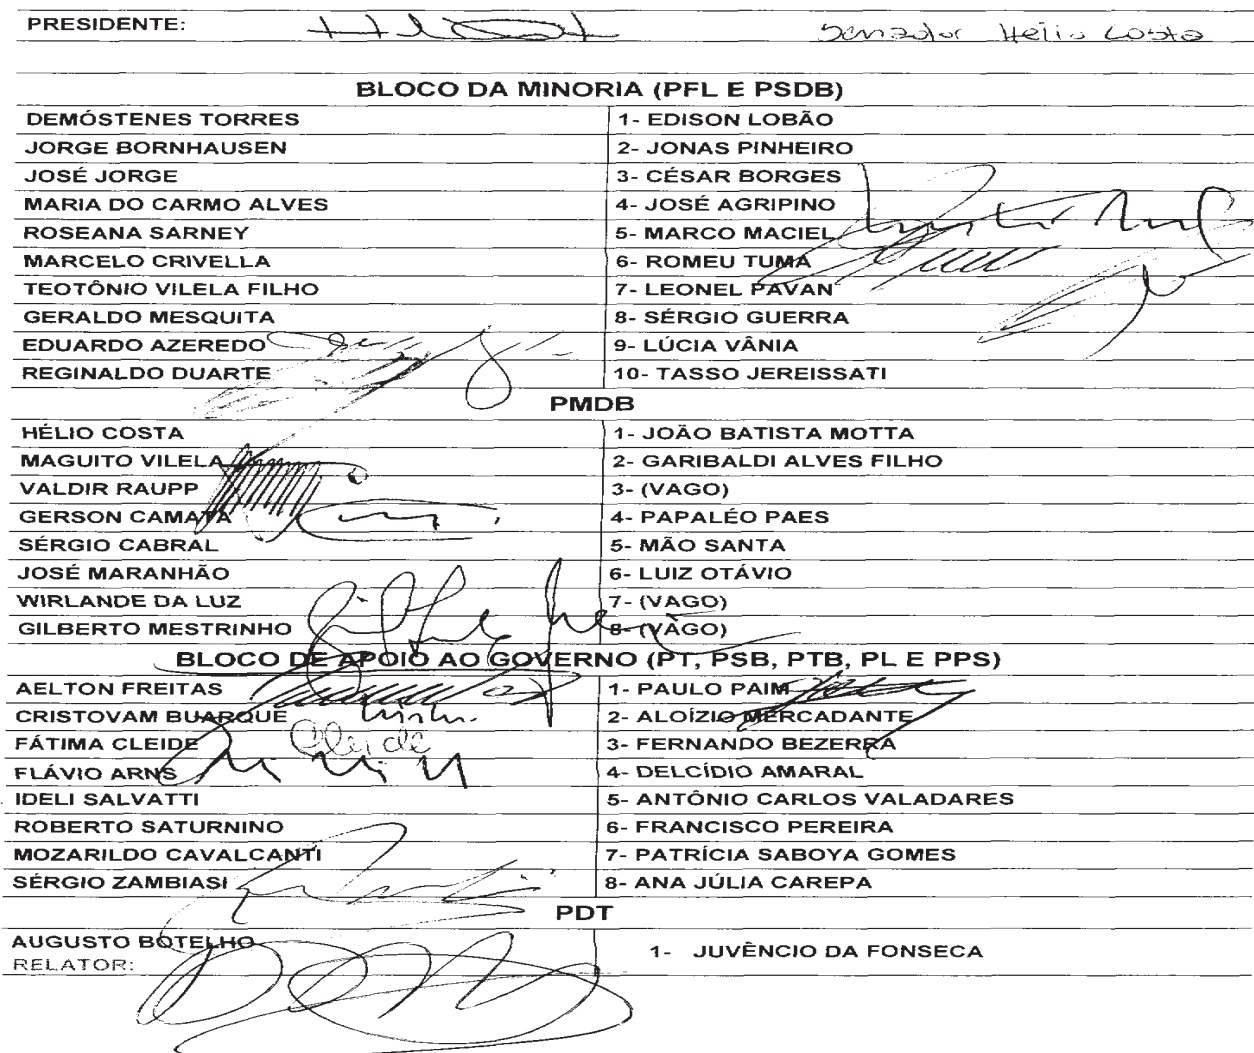 PRESIDENTE: Senador Hélio Costa
BLOCO DA MINORIA (PFL E PSDB)
DEMÓSTENES TORRES 1- EDISON LOBÃO
JORGE BORNHAUSEN 2- JONAS PINHEIRO
JOSÉ JORGE 3- CÉSAR BORGES
MARIA DO CARMO ALVES 4- JOSÉ AGRIPINO
ROSEANA SARNEY 5- MARCO MACIEL
MARCELO CRIVELLA 6- ROMEU TUMA
TEOTÔNIO VILELA FILHO 7- LEONEL PAVAN
GERALDO MESQUITA 8- SÉRGIO GUERRA
EDUARDO AZEREDO 9- LÚCIA VÂNIA
REGINALDO DUARTE 10- TASSO JEREISSATI
PMDB
HÉLIO COSTA 1- JOÃO BATISTA MOTTA
MAGUITO VILELA 2- GARIBALDI ALVES FILHO
VALDIR RAUPP 3- (VAGO)
GERSON CAMATA 4- PAPALÉO PAES
SÉRGIO CABRAL 5- MÃO SANTA
JOSÉ MARANHÃO 6- LUIZ OTÁVIO
WIRLANDE DA LUZ 7- (VAGO)
GILBERTO MESTRINHO 8- (VAGO)
BLOCO DE APOIO AO GOVERNO (PT, PSB, PTB, PL E PPS)
AELTON FREITAS 1- PAULO PAIM
CRISTOVAM BUARQUE 2- ALOÍZIO MERCADANTE
FÁTIMA CLEIDE Cleide 3- FERNANDO BEZERRA
FLÁVIO ARNS 4- DELCÍDIO AMARAL
IDELI SALVATTI 5- ANTÔNIO CARLOS VALADARES
ROBERTO SATURNINO 6- FRANCISCO PEREIRA
MOZARILDO CAVALCANTI 7- PATRÍCIA SABOYA GOMES
SÉRGIO ZAMBIASI 8- ANA JÚLIA CAREPA
PDT
AUGUSTO BOTELHO 1- JUVÊNCIO DA FONSECA
RELATOR: